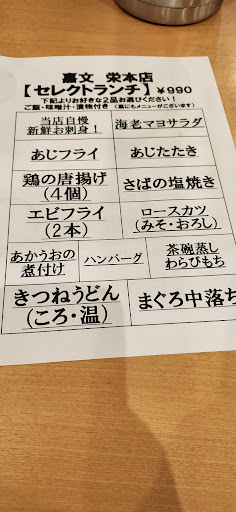 嘉文 栄本店
【セレクトランチ】￥990
下記よりお好きな2品お選びください！
ご飯・味噌汁・漬物付き（裏にもメニューがございます）
当店自慢
新鮮お刺身！
海老マヨサラダ
あじフライ
あじたたき
鶏の唐揚げ
（4個）
さばの塩焼き
エビフライ
（2本）
ロースカツ
（みそ・おろし）
あかうおの
煮付け
ハンバーグ
茶碗蒸し
わらびもち
きつねうどん
（ころ・温）
まぐろ中落ち